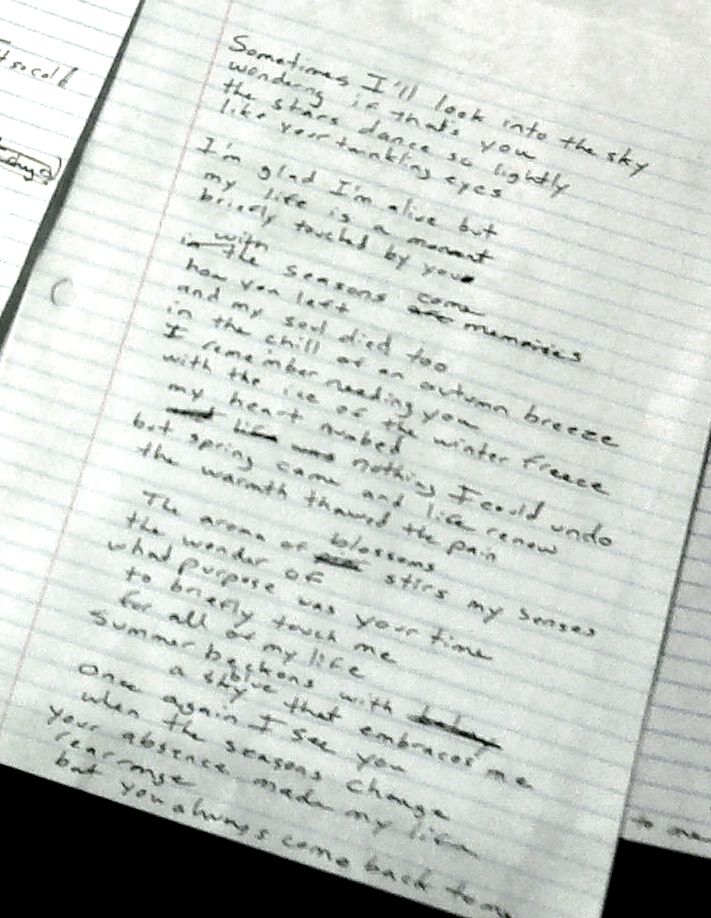 Sometimes I'll look into the sky
wondering if that's you
the stars dance so lightly
like your twinkling eyes
I'm glad I'm alive but
my life is a moment
briefly touched by you
with
in the seasons come memories
how you left
and my soul died too
in the chill of an autumn breeze
I remember needing you
with the ice of the winter freeze
my heart numbed
life was nothing I could undo
but spring came and life renew
the warmth thawed the pain
The aroma of blossoms stirs my senses
the wonder of
what purpose was your time
to briefly touch me
for all of my life
Summer beckons with
a blue sky that embraces me
Once again I see you
when the seasons change
your absence made my life
rearrange
but you always come back to my
to me